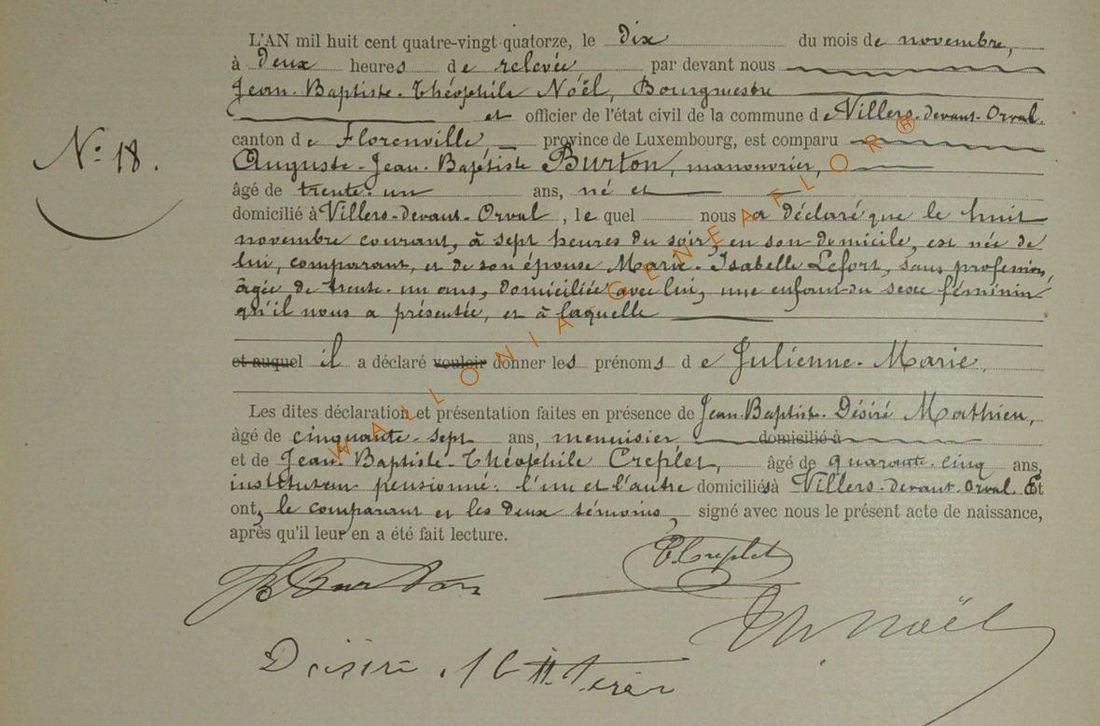 L'AN mil huit cent quatre-vingt-quatorze, le dix du mois de novembre,
à deux heures de relevée par devant nous
Jean-Baptiste-Théophile Noël, Bourgmestre
et officier de l'état civil de la commune de Villers-devant-Orval
N° 18.
canton de Florenville, province de Luxembourg, est comparu
Auguste-Jean-Baptiste Burton, manouvrier,
âgé de trente-un ans, né et
domicilié à Villers-devant-Orval, le quel nous a déclaré que le huit
novembre courant, à sept heures du soir, en son domicile, est née de
lui, comparant, et de son épouse Marie-Isabelle Lefort, sans profession,
âgée de trente-un ans, domiciliée avec lui, une enfant du sexe féminin
qu'il nous a présentée, et à laquelle
et auquel il a déclaré vouloir donner les prénoms de Julienne-Marie.
Les dites déclaration et présentation faites en présence de Jean-Baptiste-Désiré Mathieu,
âgé de cinquante-sept ans, menuisier domicilié à
et de Jean-Baptiste-Théophile Creplet, âgé de quarante-cinq ans,
instituteur pensionné: l'un et l'autre domiciliés à Villers-devant-Orval. Et
ont, le comparant et les deux témoins, signé avec nous le présent acte de naissance,
après qu'il leur en a été fait lecture.
Burton
Creplet
Th. Noël
Désiré
WALLONIA-GENEAFLOR®